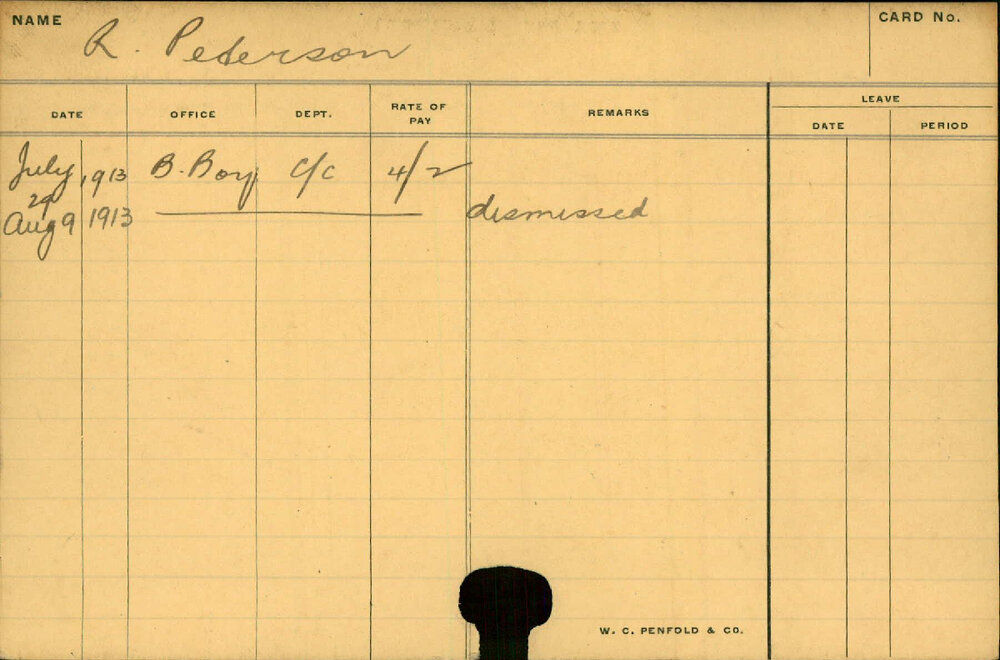 NAME R. Peterson CARD No.
DATE OFFICE DEPT. RATE OF PAY REMARKS LEAVE
DATE PERIOD
July 29 1913 B. Boy C/C 4/2
Aug 9 1913 dismissed
W. C. PENFOLD & CO.